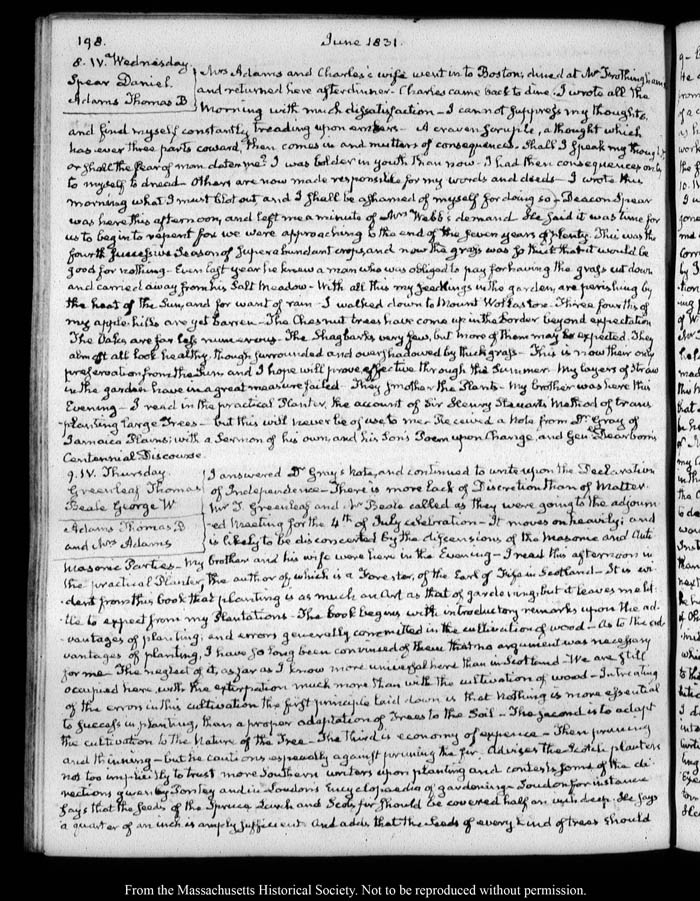 198.
June 1831.
8. IV. Wednesday
Spear Daniel
Adams Thomas B
Mrs Adams and Charles's wife went in to Boston; dined at Mr Frothingham's
and returned here after dinner. Charles came back to dine. I wrote all the
morning with much dissatisfaction — I cannot suppress my thoughts,
and find myself constantly treading upon embers — A craven scruple, a thought which
has ever three parts coward, then comes in and mutters of consequences. Shall I speak my thoughts,
or shall the fear of man deter me? I was bolder in youth than now. I had then consequences only
to myself to dread — Others are now made responsible for my words and deeds — I wrote this
morning what I must blot out and I shall be ashamed of myself for doing so — Deacon Spear
was here this afternoon, and left me a minute of Mrs Webb's demand He said it was time for
us to begin to repent for we were approaching to the end of the seven years of plenty. This was the
fourth successive season of superabundant crops, and now the grass was so thick that it would be
good for nothing — Even last year he knew a man who was obliged to pay for having the grass cut down
and carried away from his Salt Meadow — With all this my seedlings in the garden, are perishing by
the heat of the Sun, and for want of rain — I walked down to Mount Wollaston. Three fourths of
my apple-hills are yet barren — The Chesnut trees have come up in the border beyond expectation
The Oaks are far less numerous. The Shagbarks very few, but more of them may be expected. They
almost all look healthy, though surrounded and overshadowed by thick grass — This is now their only
preservation from the Sun and I hope will prove effective through the Summer — My layers of Straw
in the garden have in a great measure failed — They smother the Plants — My brother was here this
Evening — I read in the practical Planter, the account of Sir Henry Steuart's Method of trans
-planting large Trees — but this will never be of use to me — Received a Note from Dr Gray of
Jamaica Plains; with a Sermon of his own, and his Son's Poem upon Change, and Genl Dearborn's
Centennial Discourse.
9. IV. Thursday
Greenleaf Thomas
Beale George W
Adams Thomas B
and Mrs Adams
I answered Dr Gray's Note, and continued to write upon the Declaration
of Independence — There is more lack of Discretion than of Matter.
Mr T. Greenleaf and Mr Beale called as they were going to the adjourn
-ed Meeting for the 4th of July celebration — It moves on heavily; and
is likely to be disconcerted by the dissensions of the Masonic and Anti
Masonic Parties — My brother and his wife were here in the Evening — I read this afternoon in
the practical Planter, the author of which is a Forester, of the Earl of Fife in Scotland — It is evi
-dent from this book that planting is as much an Art as that of gardening; but it leaves me lit
-tle to expect from my Plantations — The book begins with introductory remarks upon the ad
-vantages of planting, and errors generally committed in the cultivation of wood — As to the ad
vantages of planting, I have so long been convinced of them that no argument was necessary
for me — The neglect of it, as far as I know more universal here than in Scotland — We are still
occupied here with the extirpation much more than with the cultivation of wood — In treating
of the errors in this cultivation the first principle laid down is that Nothing is more essential
to success in planting, than a proper adaptation of Trees to the Soil — The second is to adapt
the cultivation to the Nature of the Tree — The third is economy of expence — Then pruning
and thinning — but he cautions especially against pruning the fir. advises the Scotch planters
not too implicitly to trust more Southern writers upon planting and contests some of the di
-rections given by and in Loudon's Encyclopaedia of gardening — Loudon for instance
says that the seeds of the Spruce Larch and Scots fir should be covered half an inch deep. He says
a quarter of an inch is amply sufficient and adds that the seeds of every kind of trees should
From the Massachusetts Historical Society. Not to be reproduced without permission.